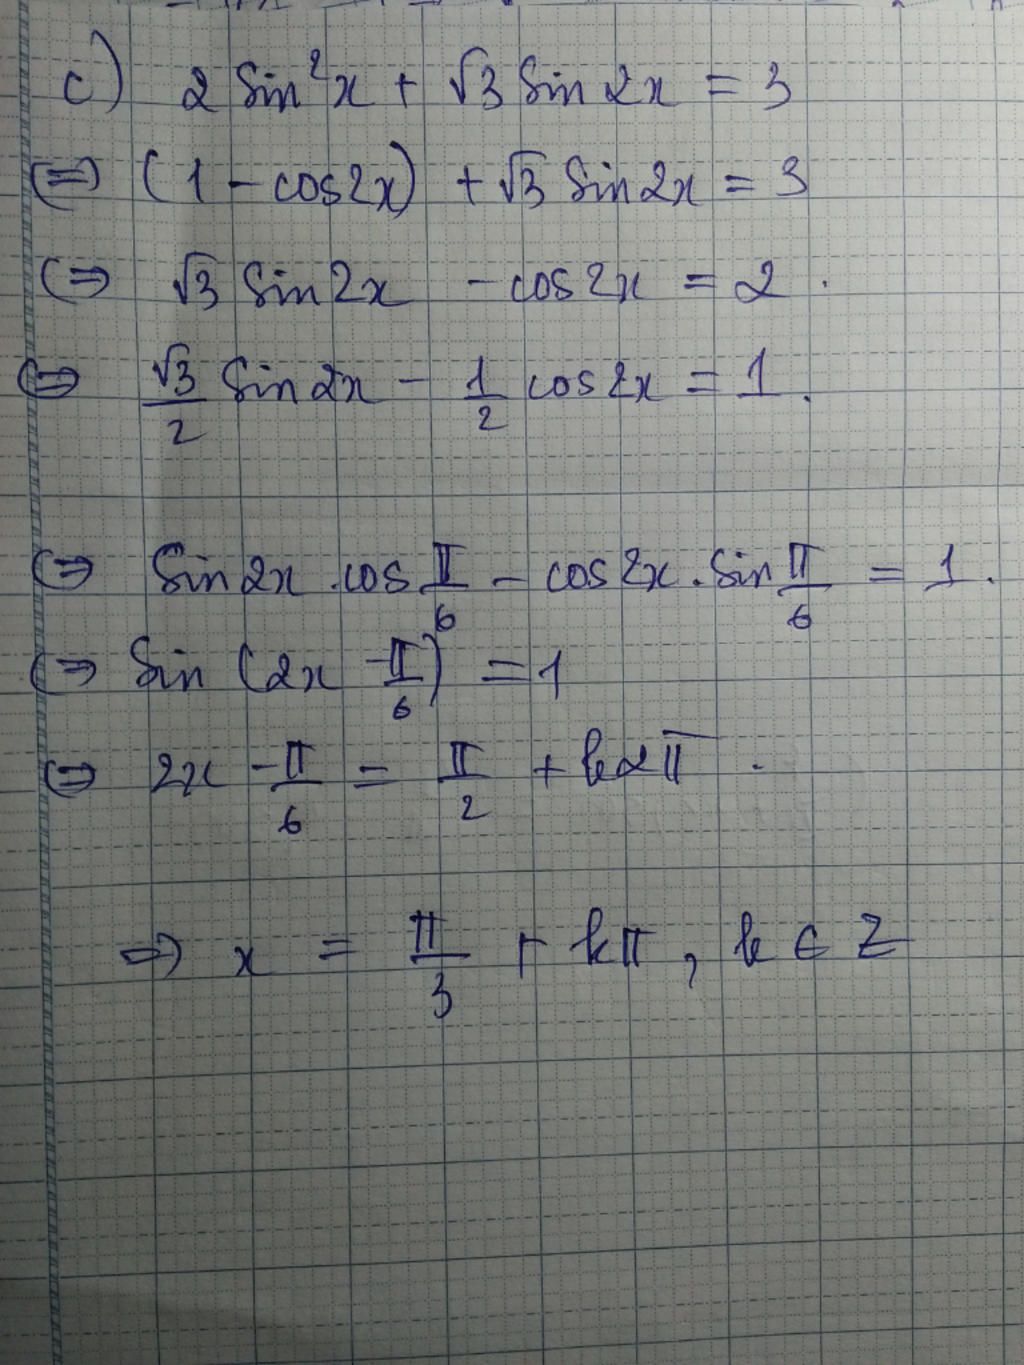 c) 2 sin²x + √3 sin 2x = 3
⇔ (1 - cos2x) + √3 sin 2x = 3
⇔ √3 sin 2x - cos 2x = 2.
⇔ √3/2 sin 2x - 1/2 cos 2x = 1.
⇔ sin 2x . cos π/6 - cos 2x . sin π/6 = 1.
⇔ sin (2x - π/6) = 1
⇔ 2x - π/6 = π/2 + k2π.
⇒ x = π/3 + kπ, k ∈ Z